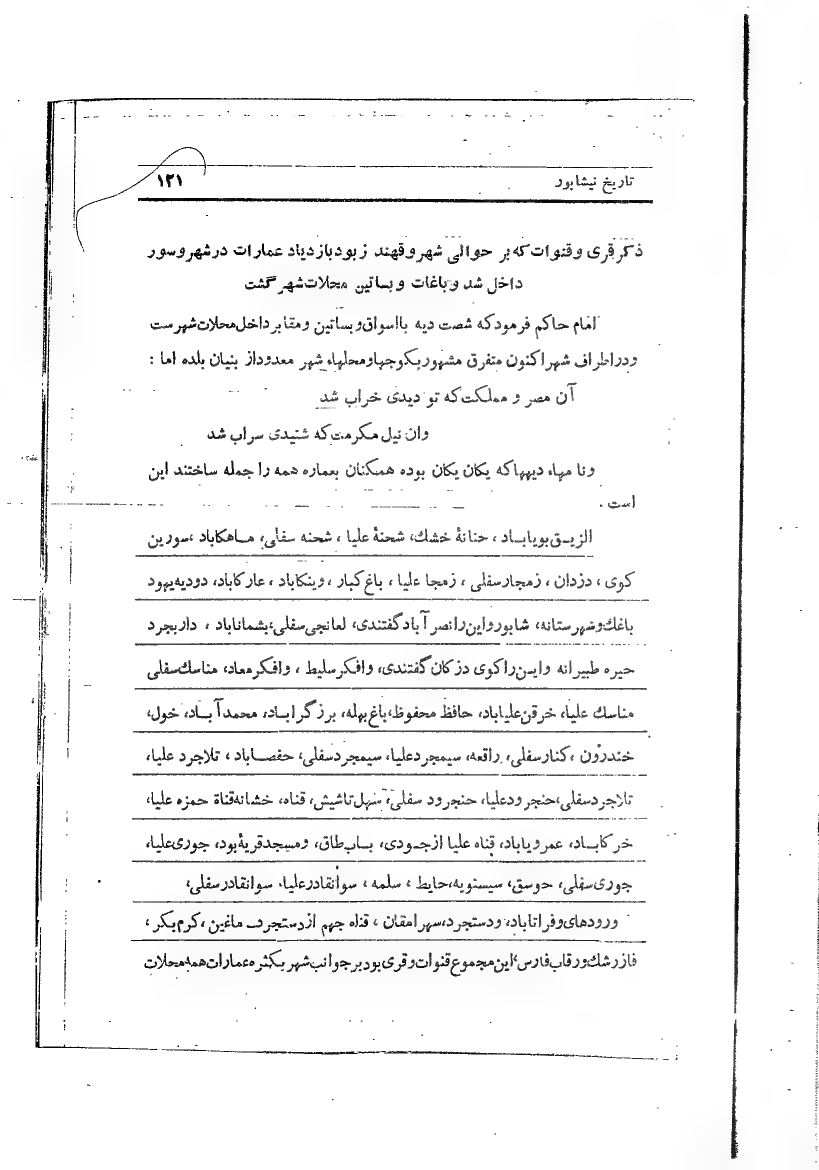 تاریخ نیشابور ۱۲۱
ذکر قری و قنوات که بر حوالی شهر و قهند ز بود بازدیاد عمارات در شهر و سور
داخل شد و باغات و بساتین محلات شهر گشت
امام حاکم فرمود که شصت دیه بااسواق و بساتین و مقابر داخل محلات شهرست
ودراطراف شهر اکنون متفرق مشهور بکوچها و محلهاء شهر معدوداز بنیان بلده اما :
آن مصر و مملکت که تو دیدی خراب شد
وان نیل مکرمت که شنیدی سراب شد
ونا مهاء دیهها که یکان یکان بوده همکنان بعماره همه را جمله ساختند این
است .
الزیـق بویابـاد ، حنانهٔ خشك، شحنهٔ علیا ، شحنه سفلی، مـاهکاباد ،سورین
کوی ، دزدان ، زمجارسفلی ، زمجا علیا ، باغ کبار ، وینکاباد ، عارکاباد، دودیه یهود
باغك و شهرستانه، شاپورواین را نصر آباد گفتندی، لعانجی سفلی، بشماناباد ، داربجرد
حیره طبیرانه وایـن راکوی دزکان گفتندی، وافکر سلیط ، وافکر معاد، مناسك سفلی
مناسك علیا، خرقن علیاباد، حافظ محفوظ، باغ بهله، برزگراباد، محمدآبـاد، خول،
خندرون ،کنارسفلی، راقعه، سیمجردعلیا، سیمجردسفلی، حفصاباد ، تلاجرد علیا،
تلاجردسفلی، حنجرودعلیا، حنجرود سفلی، سهل تاشیش، قناه، خشانه قناة حمزه علیا،
خرکابـاد، عمرویاباد، قناه علیا ازجـودی، بـاب طاق، ومسجدقریهٔ بود، جوری علیا،
جوری سفلی، حوسق، سیستویه، حایط ، سلمه ، سوانقادرعلیا، سوانقادرسفلی،
ورودهای وفراتاباد، ودستجرد، سهرامقان ، قناه جهم ازدستجرد، ماغین ،کرم بکر ،
فازرشك ورقاب فارس، این مجموع قنوات وقری بود بر جوانب شهر بکثره عمارات همه محلات